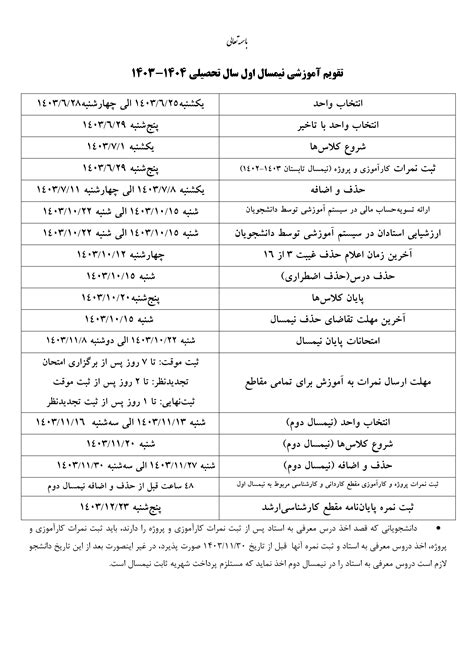 باسمه‌تعالی
تقویم آموزشی نیمسال اول سال تحصیلی ۱۴۰۴-۱۴۰۳
انتخاب واحد یکشنبه۱۴۰۳/۶/۲۵ الی چهارشنبه۱۴۰۳/۶/۲۸
انتخاب واحد با تاخیر پنج‌شنبه ۱۴۰۳/۶/۲۹
شروع کلاس‌ها یکشنبه ۱۴۰۳/۷/۱
ثبت نمرات کارآموزی و پروژه (نیمسال تابستان ۱۴۰۳-۱۴۰۲) پنج‌شنبه ۱۴۰۳/۶/۲۹
حذف و اضافه یکشنبه ۱۴۰۳/۷/۸ الی چهارشنبه ۱۴۰۳/۷/۱۱
ارائه تسویه‌حساب مالی در سیستم آموزشی توسط دانشجویان شنبه ۱۴۰۳/۱۰/۱۵ الی شنبه ۱۴۰۳/۱۰/۲۲
ارزشیابی استادان در سیستم آموزشی توسط دانشجویان شنبه ۱۴۰۳/۱۰/۱۵ الی شنبه ۱۴۰۳/۱۰/۲۲
آخرین زمان اعلام حذف غیبت ۳ از ۱۶ چهارشنبه ۱۴۰۳/۱۰/۱۲
حذف درس(حذف اضطراری) شنبه ۱۴۰۳/۱۰/۱۵
پایان کلاس‌ها پنج‌شنبه ۱۴۰۳/۱۰/۲۰
آخرین مهلت تقاضای حذف نیمسال شنبه ۱۴۰۳/۱۰/۱۵
امتحانات پایان نیمسال شنبه ۱۴۰۳/۱۰/۲۲ الی دوشنبه ۱۴۰۳/۱۱/۸
مهلت ارسال نمرات به آموزش برای تمامی مقاطع ثبت موقت: تا ۷ روز پس از برگزاری امتحان
تجدیدنظر: تا ۲ روز پس از ثبت موقت
ثبت‌نهایی: تا ۱ روز پس از ثبت تجدیدنظر
انتخاب واحد (نیمسال دوم) شنبه ۱۴۰۳/۱۱/۱۳ الی سه‌شنبه ۱۴۰۳/۱۱/۱۶
شروع کلاس‌ها (نیمسال دوم) شنبه ۱۴۰۳/۱۱/۲۰
حذف و اضافه (نیمسال دوم) شنبه ۱۴۰۳/۱۱/۲۷ الی سه‌شنبه ۱۴۰۳/۱۱/۳۰
ثبت نمرات پروژه و کارآموزی مقطع کاردانی و کارشناسی مربوط به نیمسال اول ۴۸ ساعت قبل از حذف و اضافه نیمسال دوم
ثبت نمره پایان‌نامه مقطع کارشناسی‌ارشد پنج‌شنبه ۱۴۰۳/۱۲/۲۳
• دانشجویانی که قصد اخذ درس معرفی به استاد پس از ثبت نمرات کارآموزی و پروژه را دارند، باید ثبت نمرات کارآموزی و
پروژه، اخذ دروس معرفی به استاد و ثبت نمره آنها قبل از تاریخ ۱۴۰۳/۱۱/۳۰ صورت پذیرد، در غیر اینصورت بعد از این تاریخ دانشجو
لازم است دروس معرفی به استاد را در نیمسال دوم اخذ نماید که مستلزم پرداخت شهریه ثابت نیمسال است.